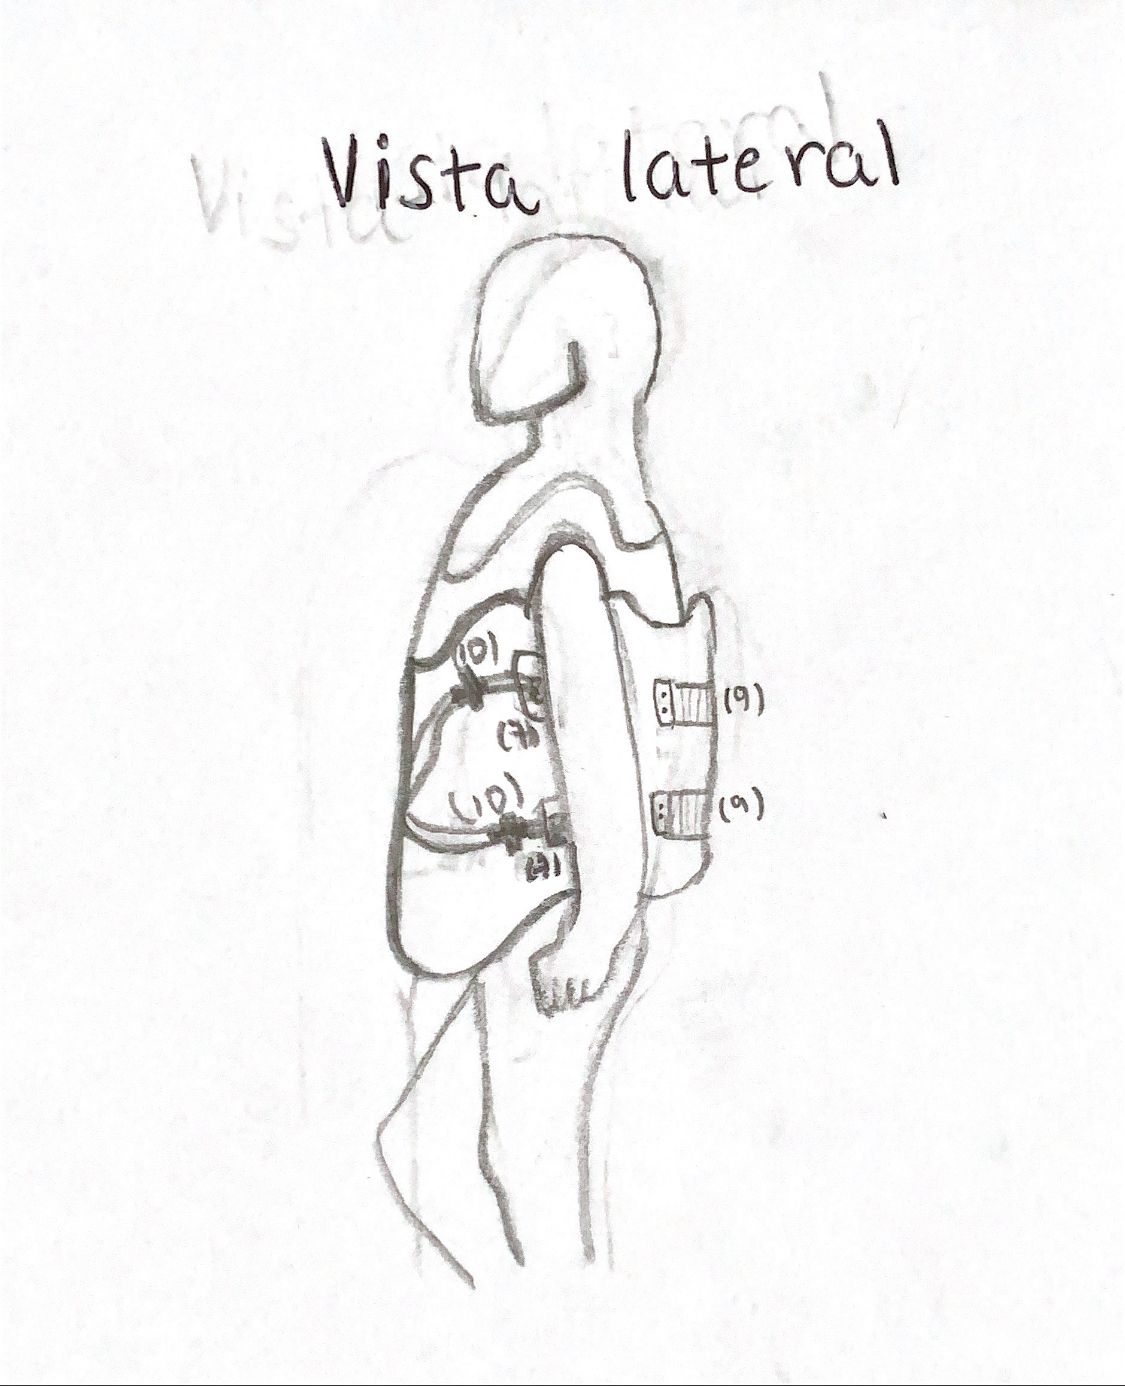 Vista lateral
(10)
(7)
(9)
(10)
(9)